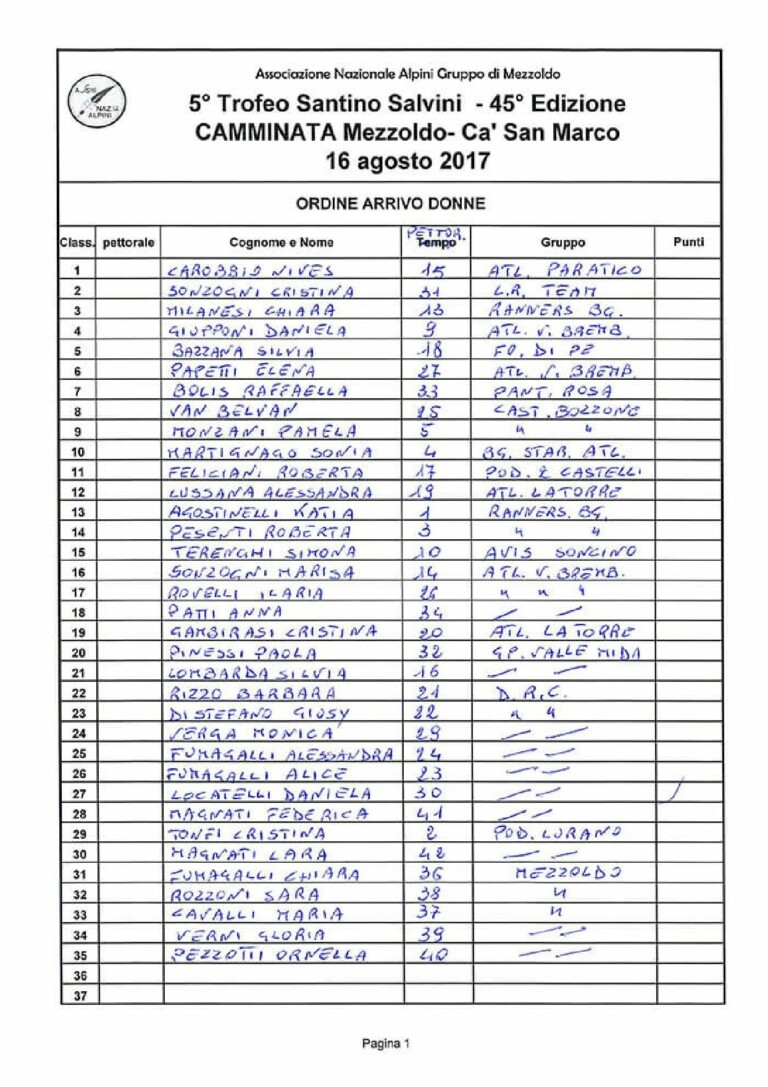 Associazione Nazionale Alpini Gruppo di Mezzoldo
NAZ.LE
ALPINI
5° Trofeo Santino Salvini - 45° Edizione
CAMMINATA Mezzoldo- Ca' San Marco
16 agosto 2017
ORDINE ARRIVO DONNE
Class. pettorale Cognome e Nome PETTOR. Tempo Gruppo Punti
1 CAROBBIO NIVES 15 ATL. PARATICO
2 SONZOGNI CRISTINA 31 L.R. TEAM
3 MILANESI CHIARA 13 RANNERS BG.
4 GIUPPONI DANIELA 9 ATL. V. BREMB.
5 BAZZANA SILVIA 18 FO. DI PE
6 PAPETTI ELENA 27 ATL. V. BREMB.
7 BOLIS RAFFAELLA 33 PANT. ROSA
8 VAN BELVAN 25 CAST. BOZZONE
9 MONZANI PAMELA 5 " "
10 MARTIGNAGO SONIA 4 BG. STAR. ATL.
11 FELICIANI ROBERTA 17 POD. 2 CASTELLI
12 LUSSANA ALESSANDRA 19 ATL. LA TORRE
13 AGOSTINELLI KATIA 1 RANNERS. BG.
14 PESENTI ROBERTA 3 " "
15 TERENGHI SIMONA 10 AVIS SONCINO
16 SONZOGNI MARISA 14 ATL. V. BREMB.
17 ROVELLI ILARIA 26 " " "
18 PATTI ANNA 34 — —
19 GAMBIRASI CRISTINA 20 ATL. LA TORRE
20 PINESSI PAOLA 32 GP. VALLE MIDA
21 LOMBARDA SILVIA 16 — —
22 RIZZO BARBARA 21 D.R.C.
23 DI STEFANO GIUSY 22 " "
24 VERGA MONICA 29 — —
25 FUMAGALLI ALESSANDRA 24 — —
26 FUMAGALLI ALICE 23 — —
27 LOCATELLI DANIELA 30 — —
28 MAGNATI FEDERICA 41 — —
29 TONFI CRISTINA 2 POD. LURANO
30 MAGNATI LARA 42 — —
31 FUMAGALLI CHIARA 36 MEZZOLDO
32 ROZZONI SARA 38 "
33 CAVALLI MARIA 37 "
34 VERNI GLORIA 39 — —
35 PEZZOTTI ORNELLA 40 — —
36
37
Pagina 1